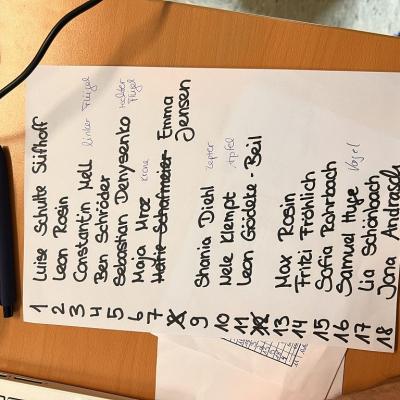 1 Luise Schulte Sifhoff
2 Leon Rosin
3 Constantin Mell linker Flügel
4 Ben Schröder
5 Sebastian Denysenko rechter Flügel
6 Maja Mroz Krone
7 Hettie Schafmeier Emma Jensen
8
9 Shania Diehl Zepter
10 Nele Klempt Apfel
11 Leon Gödeke-Beil
12
13 Max Rosin
14 Fritzi Fröhlich
15 Sofia Rohrbach
16 Samuel Hupe Vogel
17 Lia Schönbach
18 Jona Andrasch